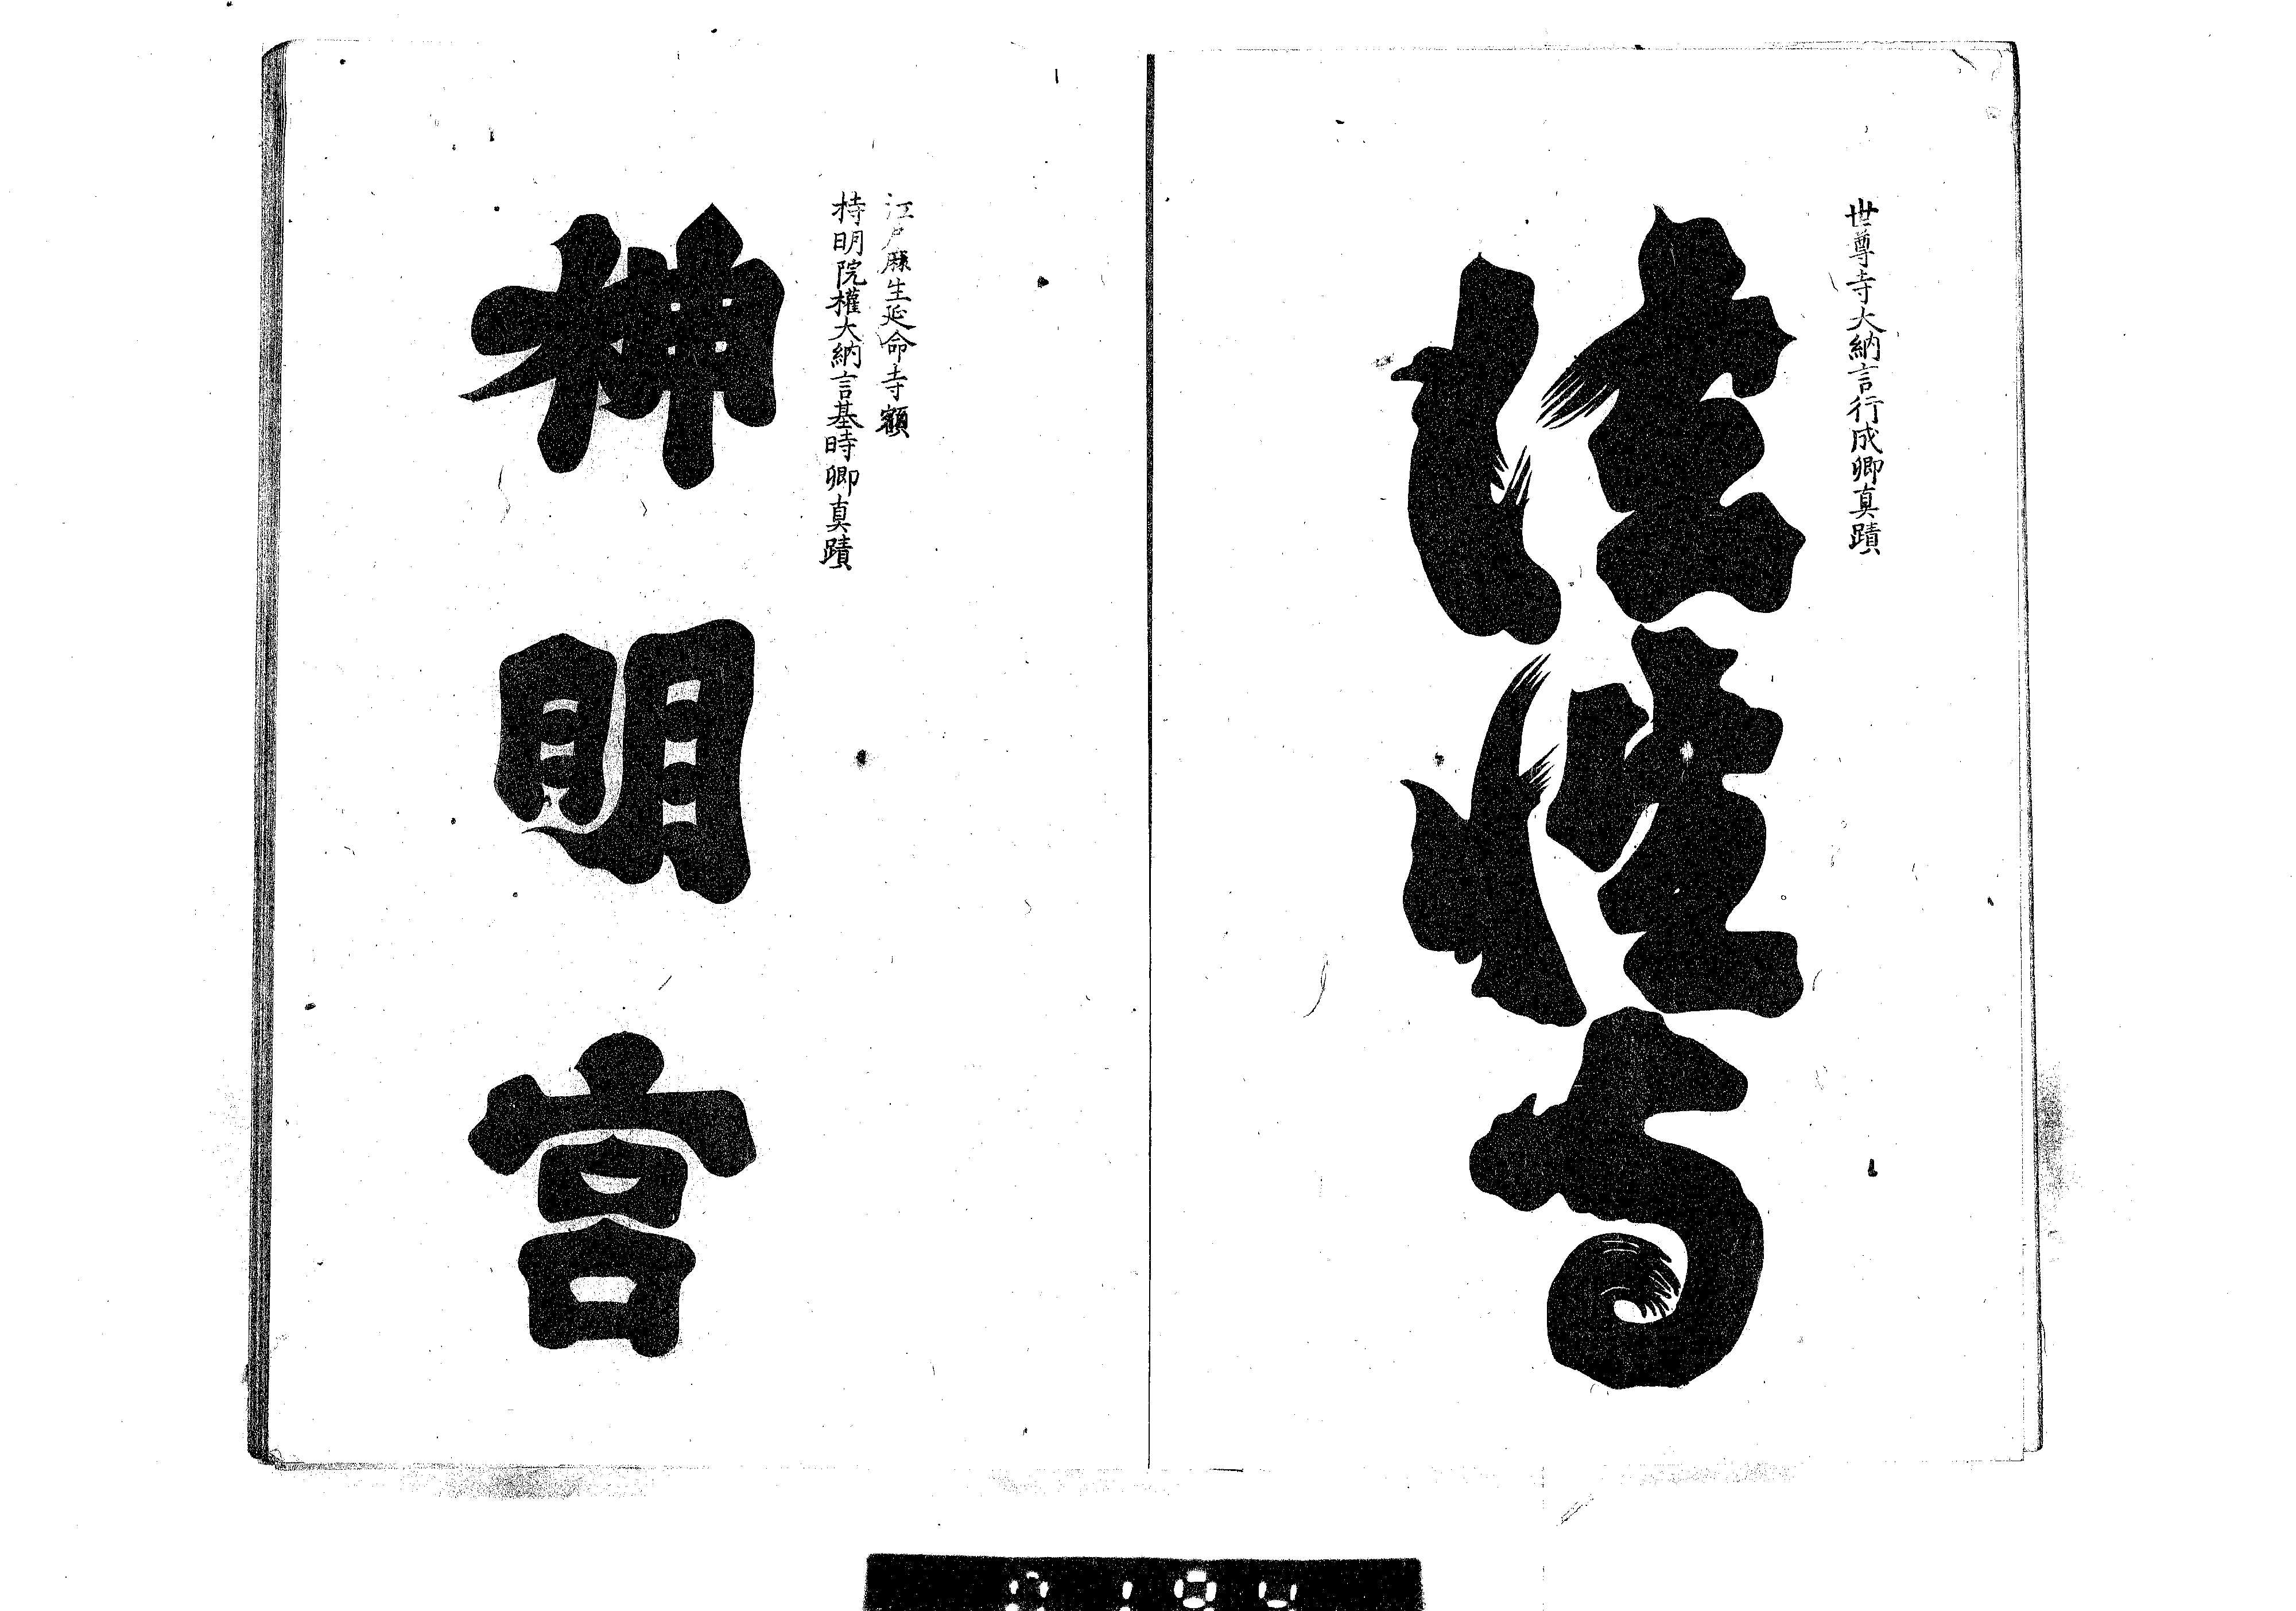 世尊寺大納言行成卿真蹟
法性寺
江戸麻生延命寺額
持明院權大納言基時卿真蹟
神明宮